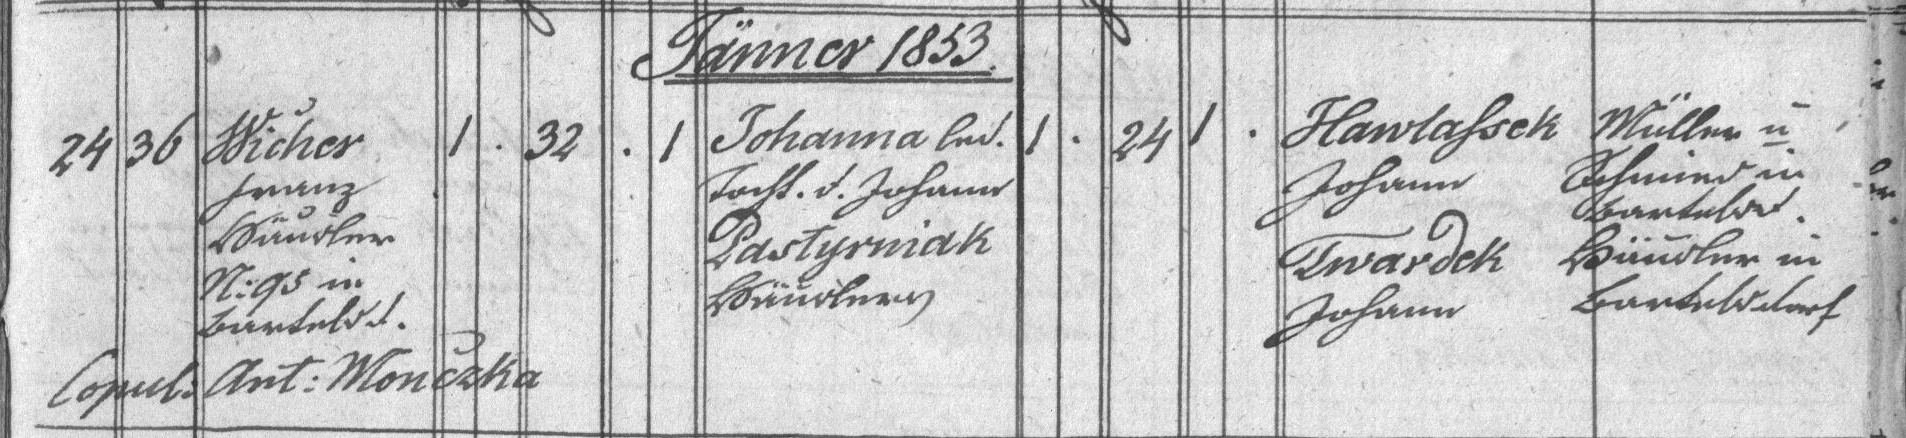 Jänner 1853.
24 36 Wicher 1 . 32 . 1 Johanna led. 1 . 24 1 . Hawlaßek Müller u
Franz Tocht. d. Johann Johann Schmied in
Häusler Pastyrniak Bartelsd.
N: 95 in Häuslers Twardek Häusler in
Bartelsd. Johann Bartelsdorf
Copul: Ant: Monczka